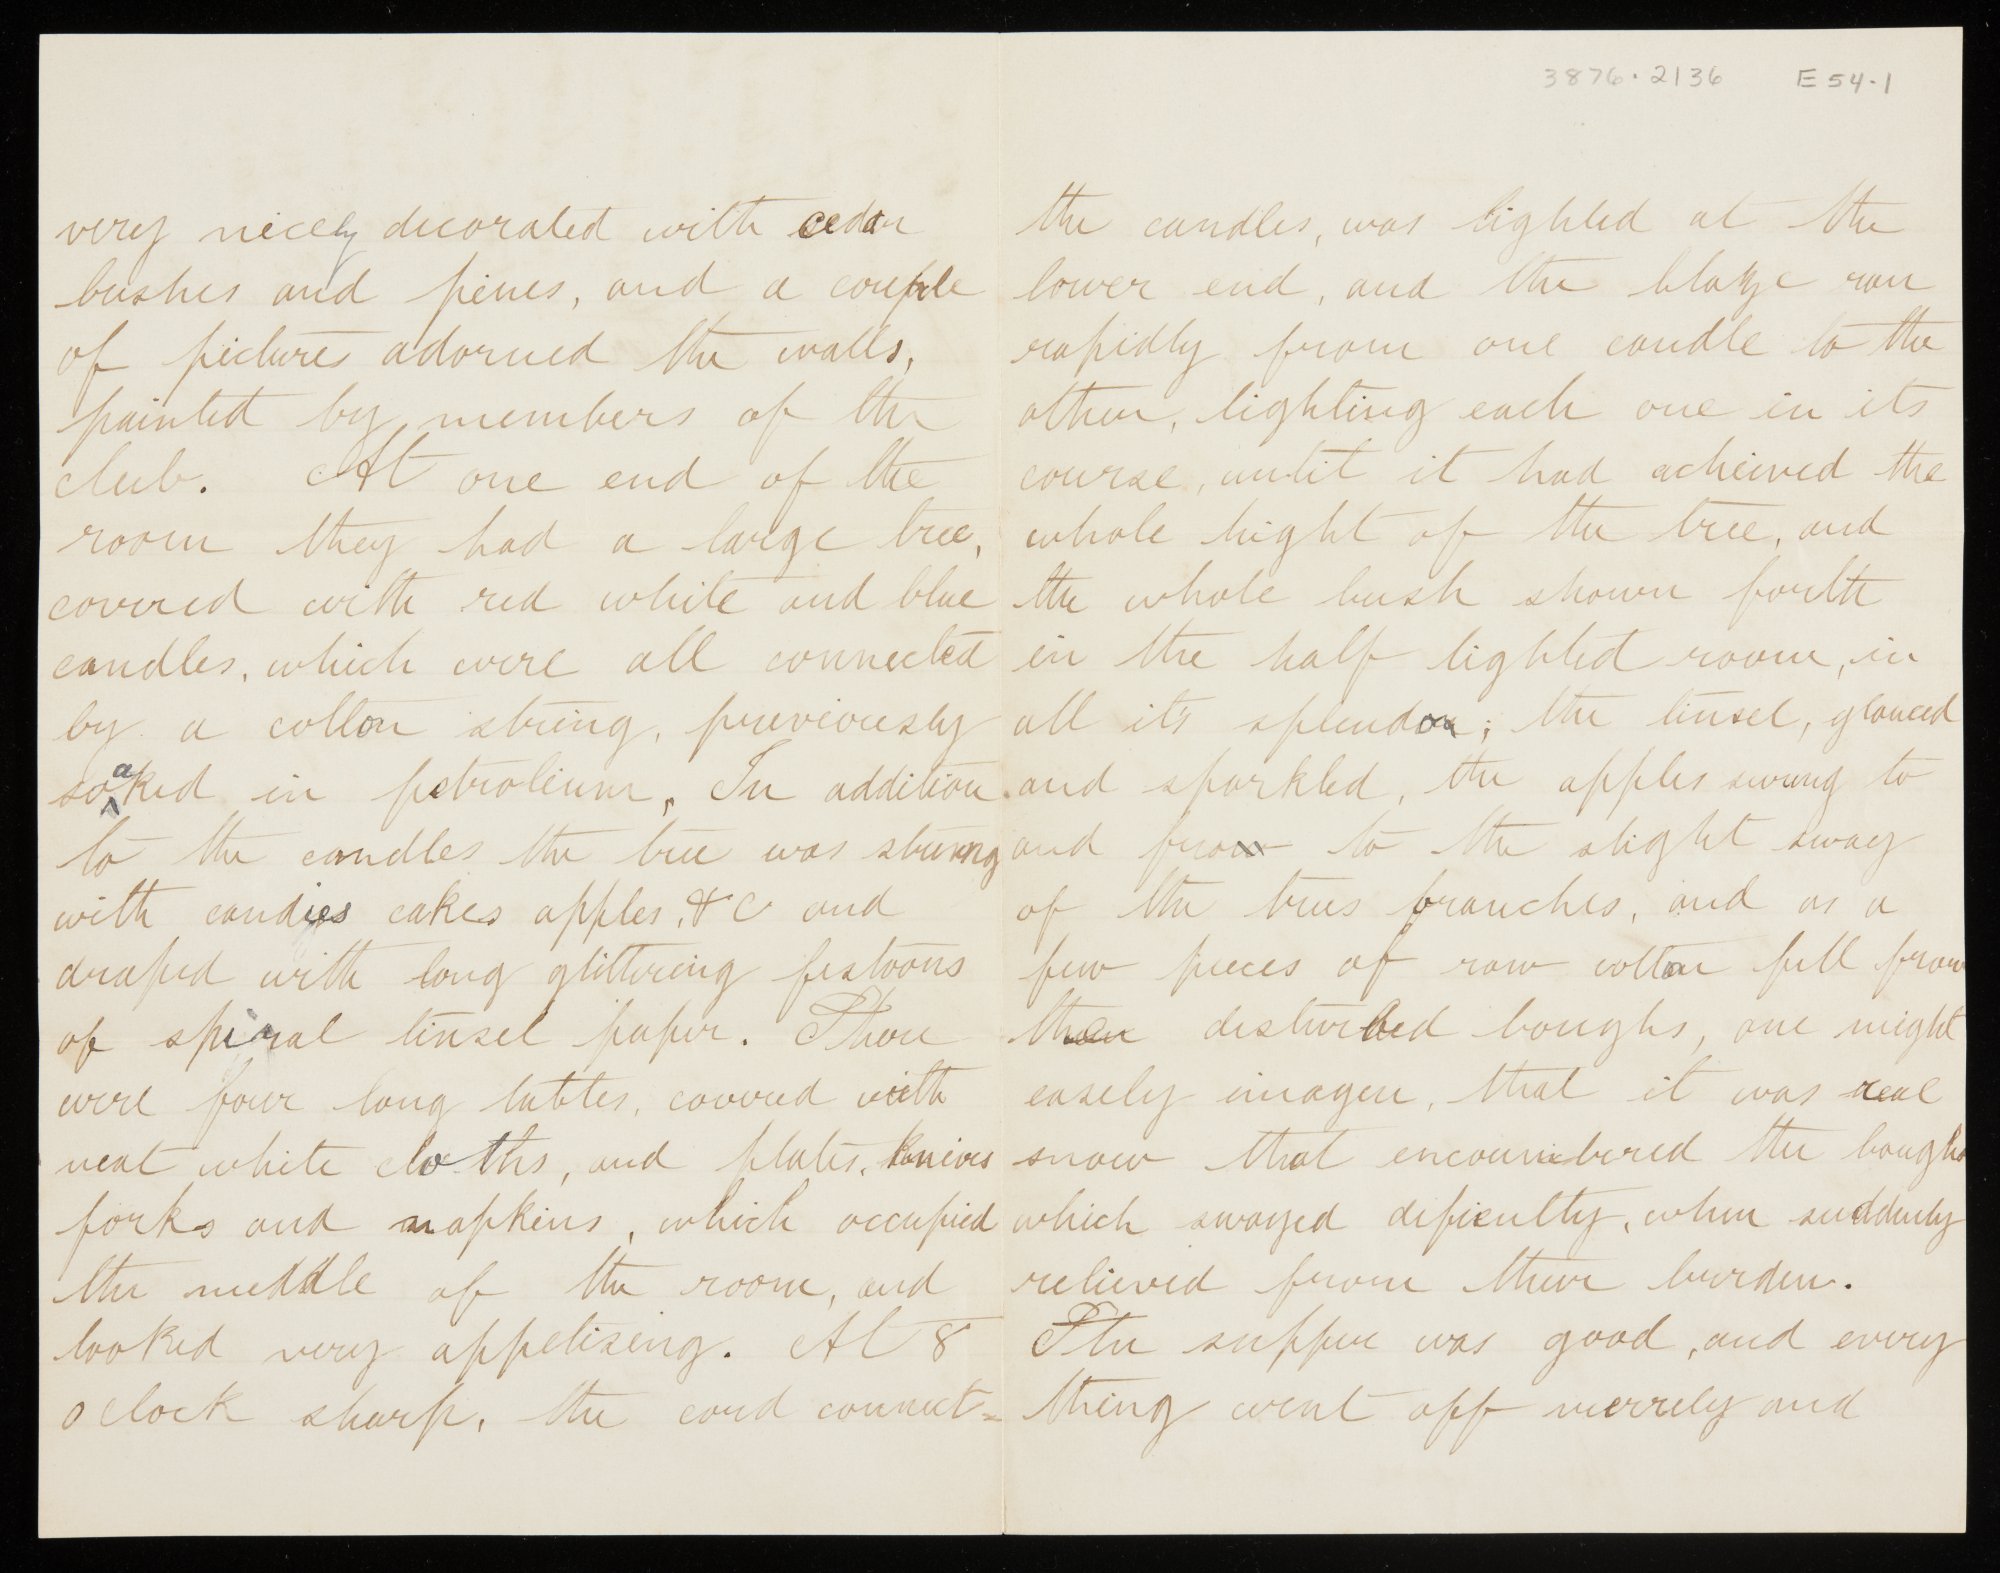 3876.2136 E54-1
very nicely decorated with cedar
bushes and pines, and a couple
of pictures adorned the walls,
painted by members of the
club. At one end of the
room they had a large tree,
covered with red white and blue
candles, which were all connected
by a cotton string, previously
soaked in petrolium. In addition
to the candles the tree was strung
with candies cakes apples, &c and
draped with long glittering festoons
of spiral tinsel paper. There
were four long tables, covered with
neat white cloths, and plates, knives
forks and napkins, which occupied
the middle of the room, and
looked very appetising. At 8
o clock sharp, the cord connect-
the candles, was lighted at the
lower end, and the blaze ran
rapidly from one candle to the
other, lighting each one in its
course, until it had acheived the
whole hight of the tree, and
the whole bush shown forth
in the half lighted room, in
all it's splendor; the tinsel, glanced
and sparkled, the apples swung to
and fro to the slight sway
of the trees branches, and as a
few pieces of raw cotton fell from
the disturbed boughs, one might
easely imagen, that it was real
snow that encoumbered the boughs
which swayed deficulty, when suddenly
relieved from their burden.
The supper was good, and every
thing went off merrely and